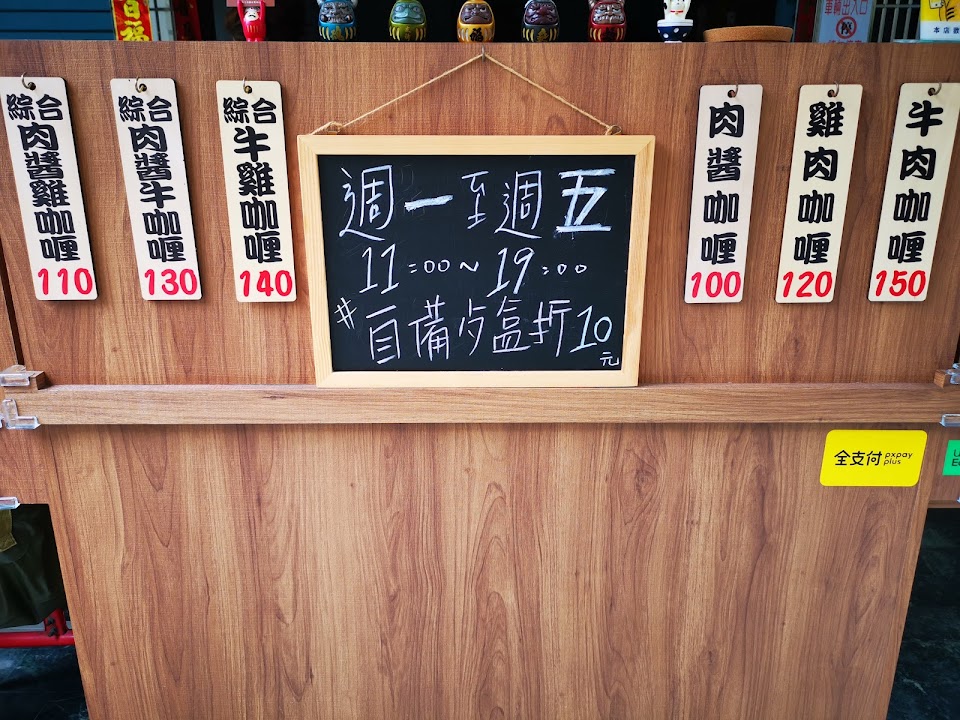 綜合
肉醬雞咖喱
110
綜合
肉醬牛咖喱
130
綜合
牛雞咖喱
140
週一至週五
11:00~19:00
#自備步盒折10元
肉醬咖喱
100
雞肉咖喱
120
牛肉咖喱
150
全支付 pxpay plus